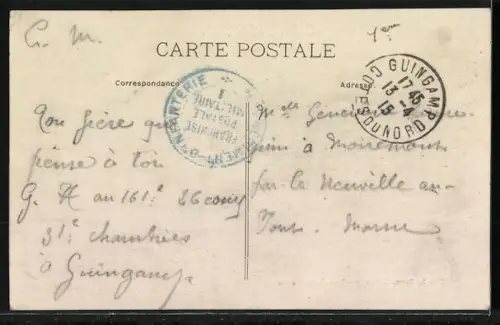 C. M.
CARTE POSTALE
Correspondance
Adresse
GUINGAMP
17 45
13 -4
15
COTES DU NORD
D'INFANTERIE
FRANCHISE
POSTALE
MILITAIRE
Ton frère qui
pense à toi
G. H au 161e 26 comp
31e chambrée
à Guingamp
Melle Geneviève
à
par la Neuville au-
Pont. Marne